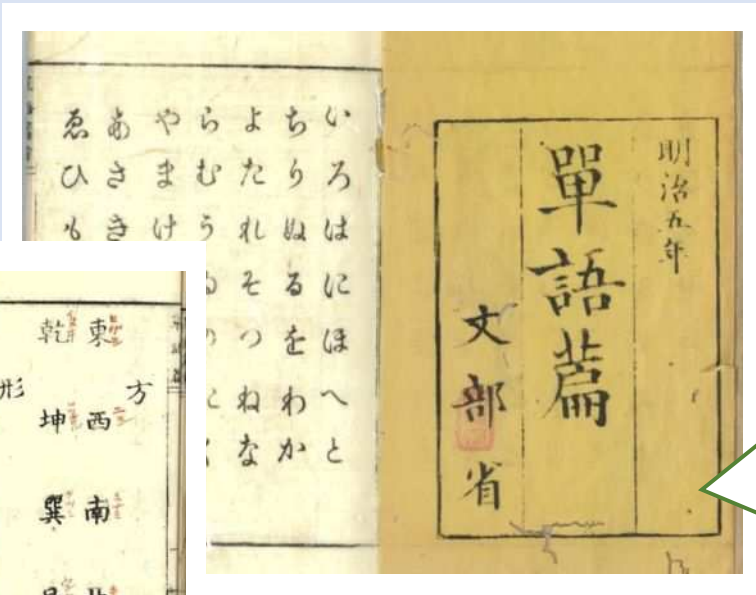 明治五年
單語篇
文部省
いろはにほへと
ちりぬるをわか
よたれそつねな
らむう
やまけ
あさき
ゑひも
方
東西南
乾坤巽
形